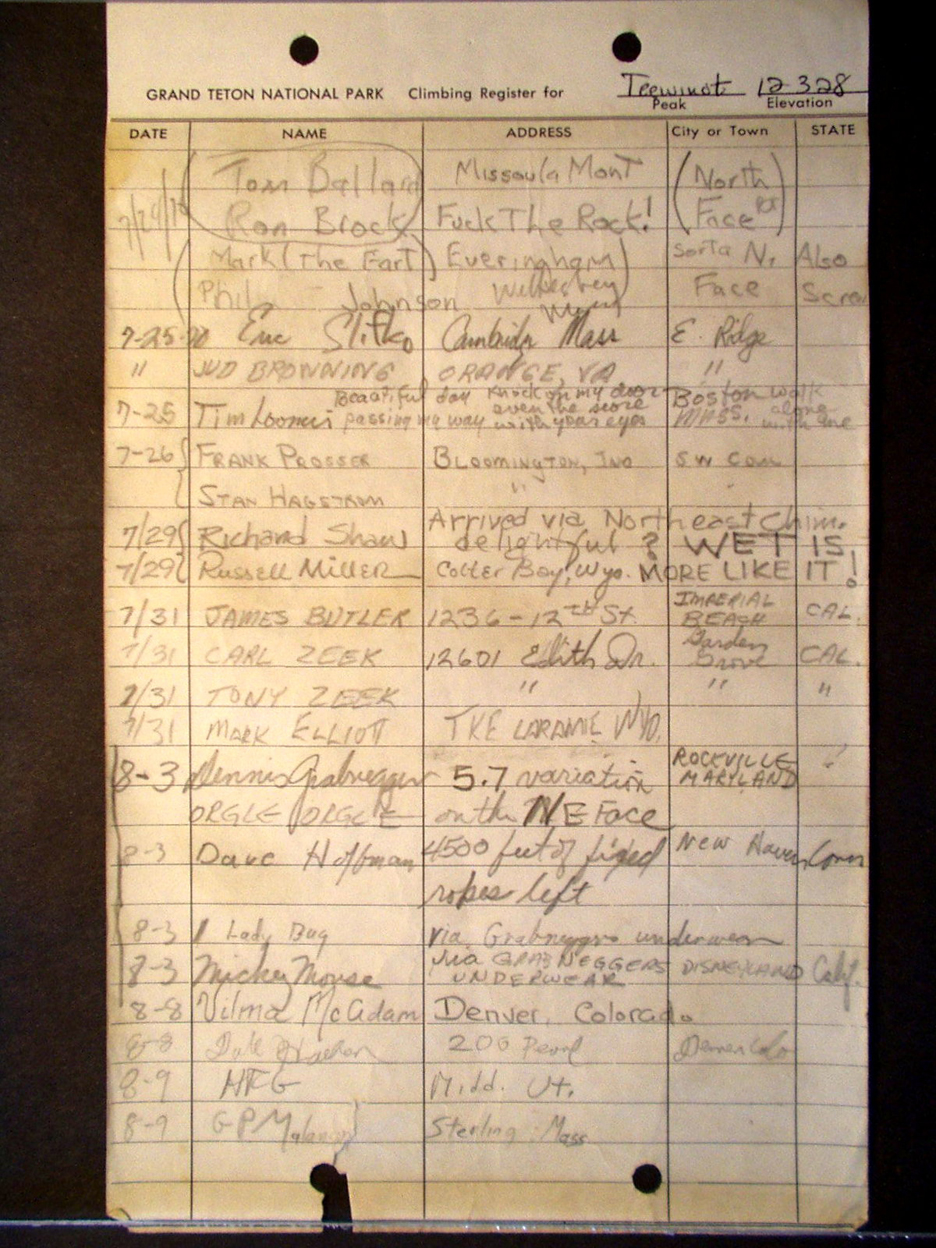 GRAND TETON NATIONAL PARK Climbing Register for Teewinot 12-328
Peak Elevation
DATE NAME ADDRESS City or Town STATE
7/24/70 Tom Ballard Missoula Mont (North
Ron Brock Fuck The Rock! Face)
(Mark (The Fart) Everingham) Sorta N. Also
Phil - Johnson Face Screw
7-25-70 Eric Slifko Cambridge Mass E. Ridge
" JUD BROWNING ORANGE, VA "
7-25 Tim Loomis Beautiful day knock on my door Boston walk
passing my way even the score MASS. along
with your eyes with me
7-26 { FRANK PROSSER BLOOMINGTON, IND SW COUL
STAN HAGSTROM " "
7/29 { Richard Shaw Arrived via Northeast Chim.
delightful ? WET IS
7/29 { Russell Miller Colter Bay, Wyo. MORE LIKE IT!
7/31 JAMES BUTLER 1236-12th St. IMPERIAL BEACH CAL.
7/31 CARL ZEEK 12601 Edith Dr. Garden Grove CAL.
7/31 TONY ZEEK " " "
7/31 MARK ELLIOTT TKE LARAMIE WYO.
8-3 Dennis Grabnegger 5.7 variation ROCKVILLE MARYLAND
ORGLE ORGLE on the NE Face
8-3 Dave Hoffman 4500 feet of fixed New Haven Conn
ropes left
8-3 Lady Bug via Grabneggers underwear
8-3 Mickey Mouse via GRABNEGGERS UNDERWEAR DISNEYLAND Calif.
8-8 Vilma McAdam Denver, Colorado
8-8 200 Pearl Denver Colo
8-9 HFG Midd. Vt.
8-9 GP Sterling Mass